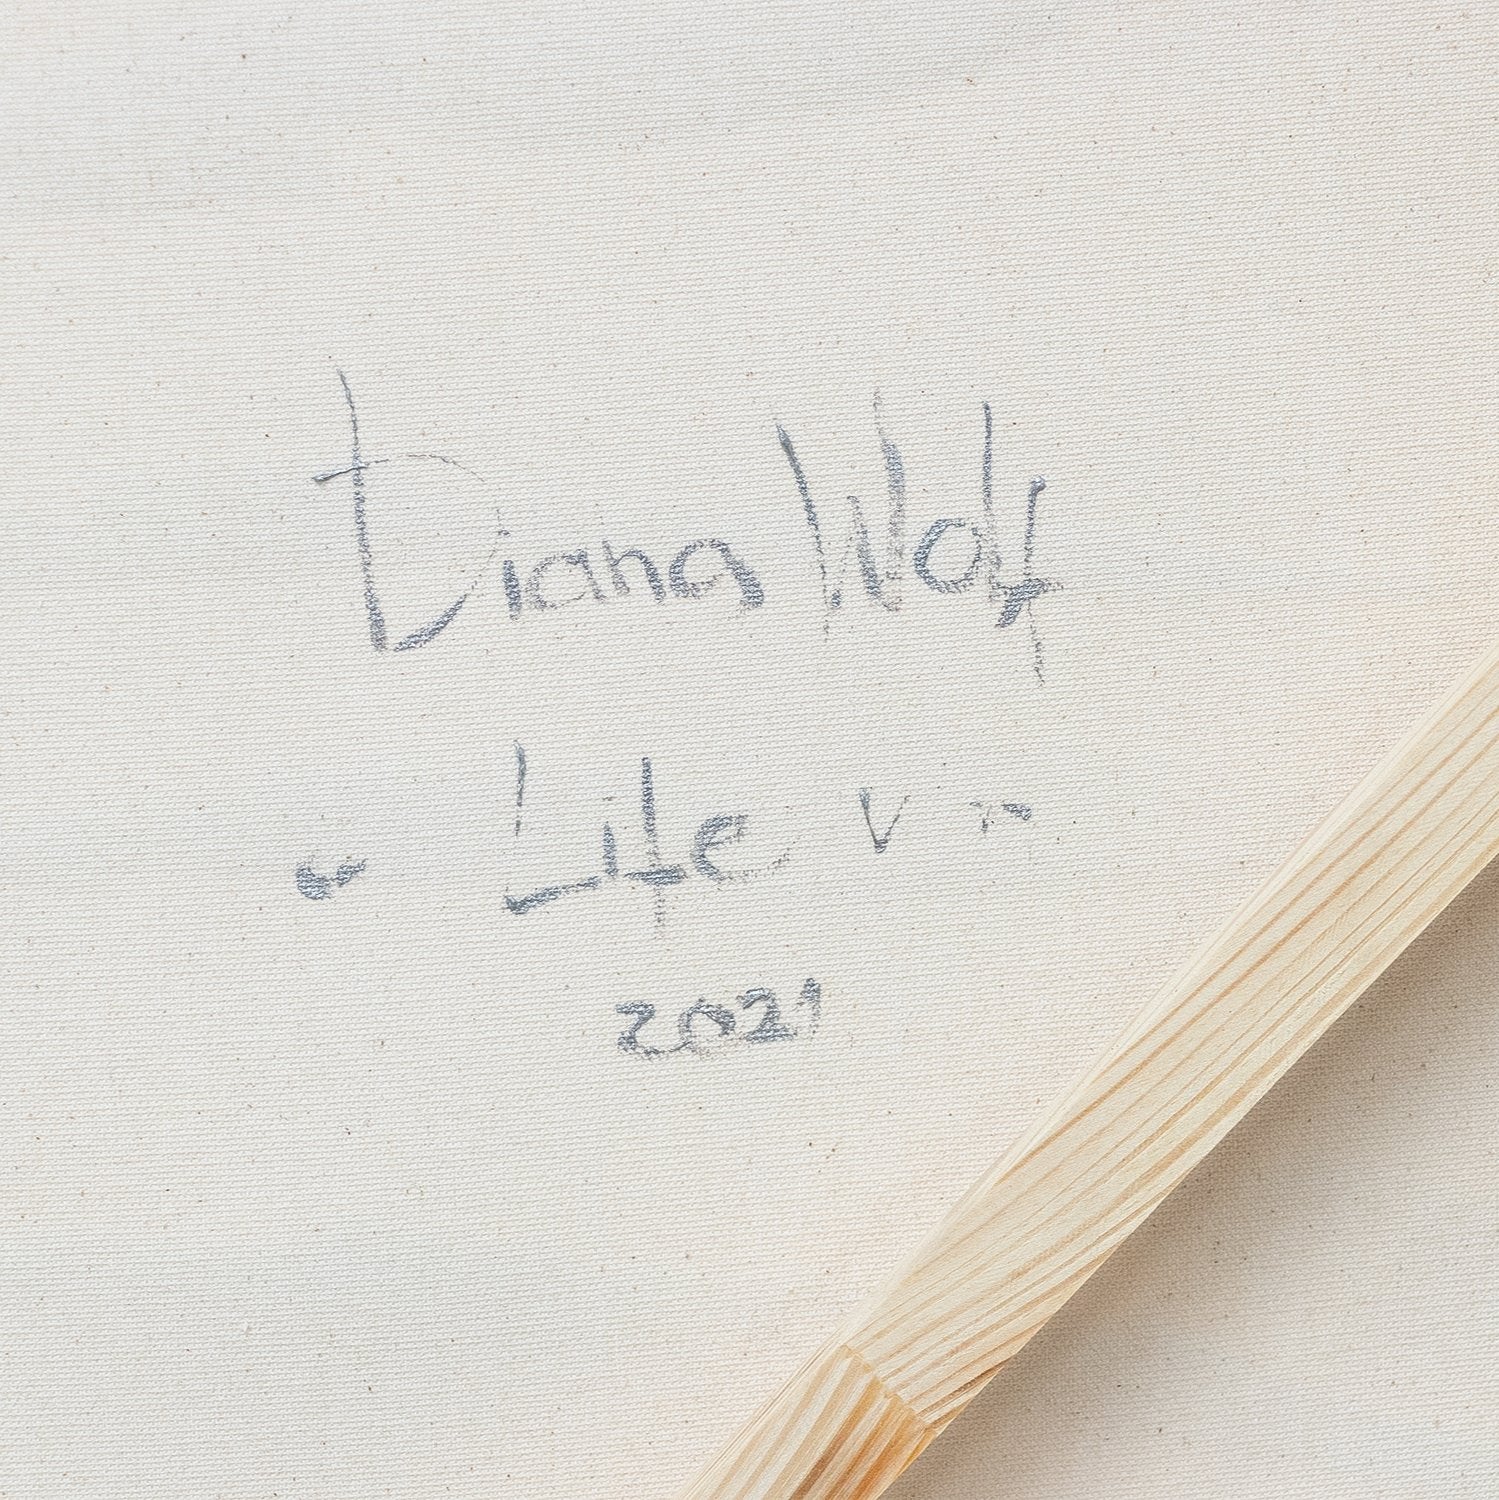 Diana Wolf
Life
2021